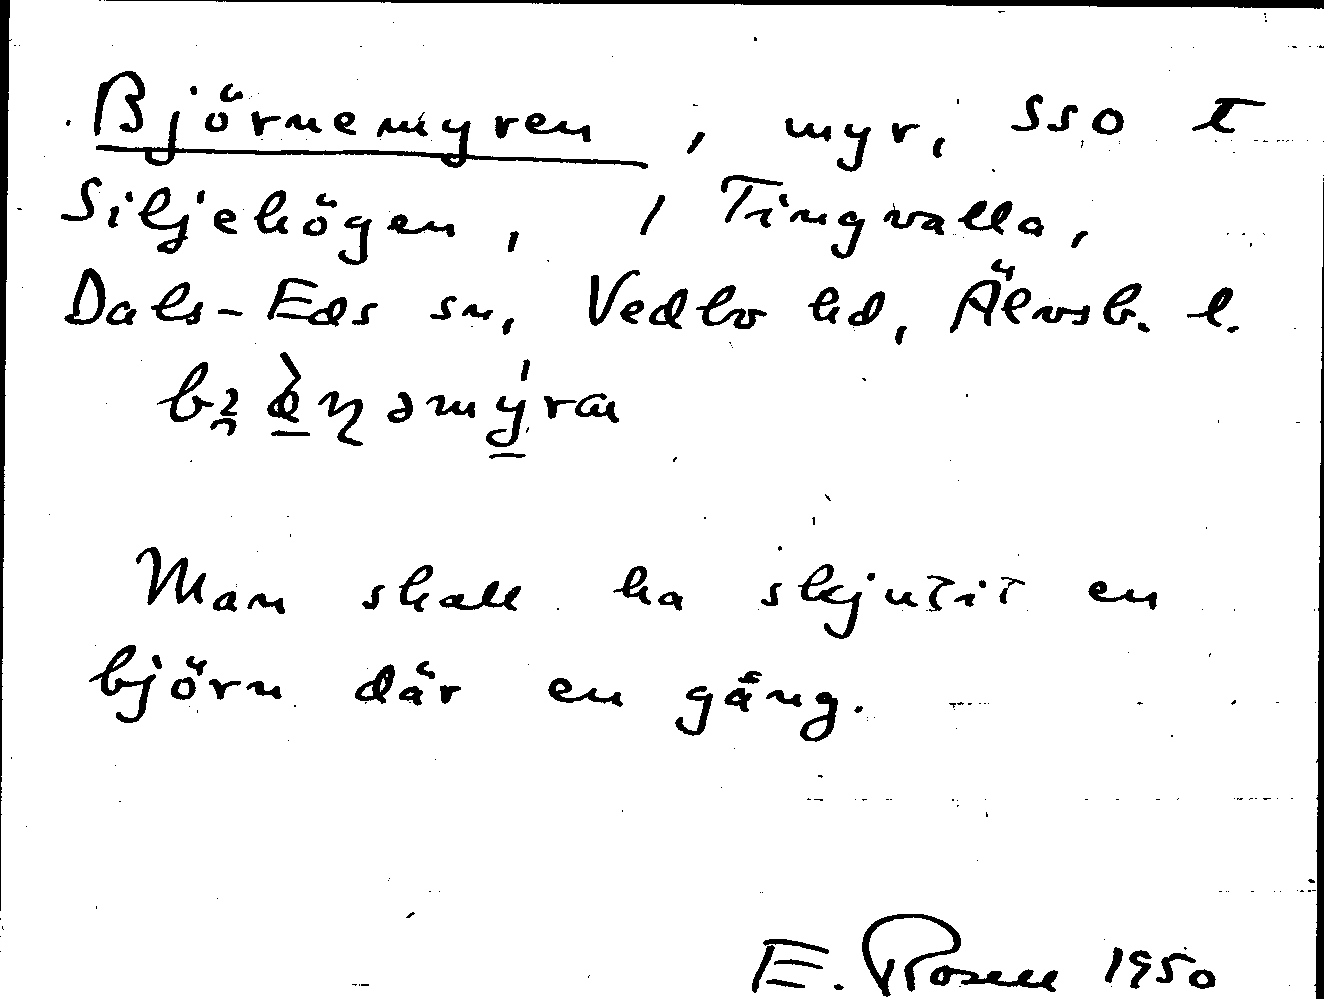 Björnemyren, myr, SSO t
Siljehögen, / Tingvalla,
Dals-Eds sn, Vedbo hd, Älvsb. l.
Man skall ha skjutit en
björn där en gång.
E. Rosell 1950